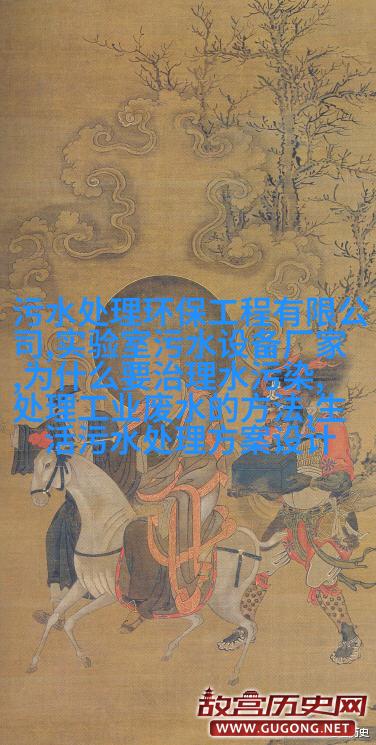 污水处理环保工程有限公
司,实验室污水设备厂家
,为什么要治理水污染,
处理工业废水的方法,生
活污水处理方案设计
故宫历史网
WWW.GUGONG.NET
历史